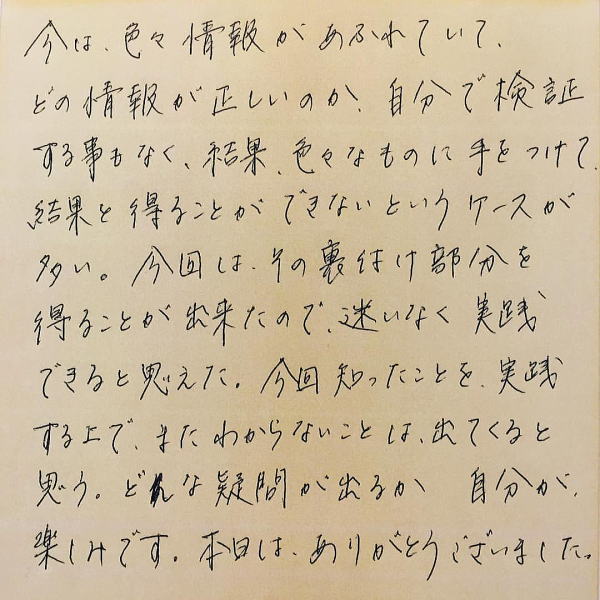 今は、色々情報があふれていて、
どの情報が正しいのか、自分で検証
する事もなく、結果、色々なものに手をつけて、
結果を得ることができないというケースが
多い。今回は、その裏付け部分を
得ることが出来たので、迷いなく実践
できると思えた。今回知ったことを、実践
する上で、またわからないことは、出てくると
思う。どんな疑問が出るか 自分が、
楽しみです。本日は、ありがとうございました。